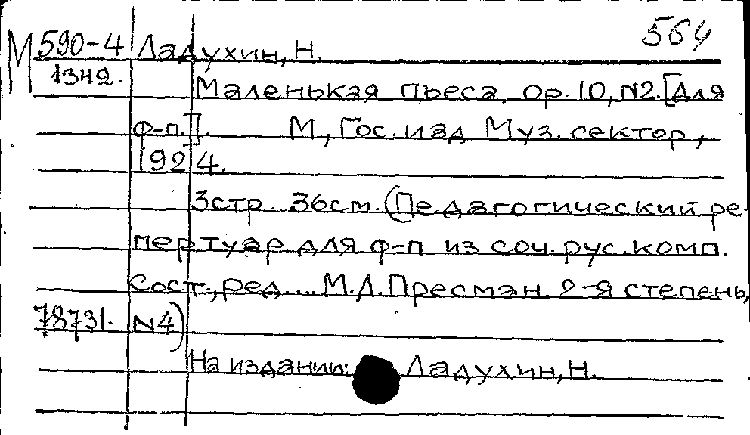 564
М 590-4 Ладухин, Н.
1349.
Маленькая пьеса, ор. 10, №2. [Для
ф-п.]. М., Гос. изд. Муз. сектор,
1924.
3 стр. 36 см. (Педагогический ре-
пертуар для ф-п из соч. рус. комп.
Сост., ред. ... М.Л. Пресман. 2-я степень,
78731. N4)
На издании: Ладухин, Н.